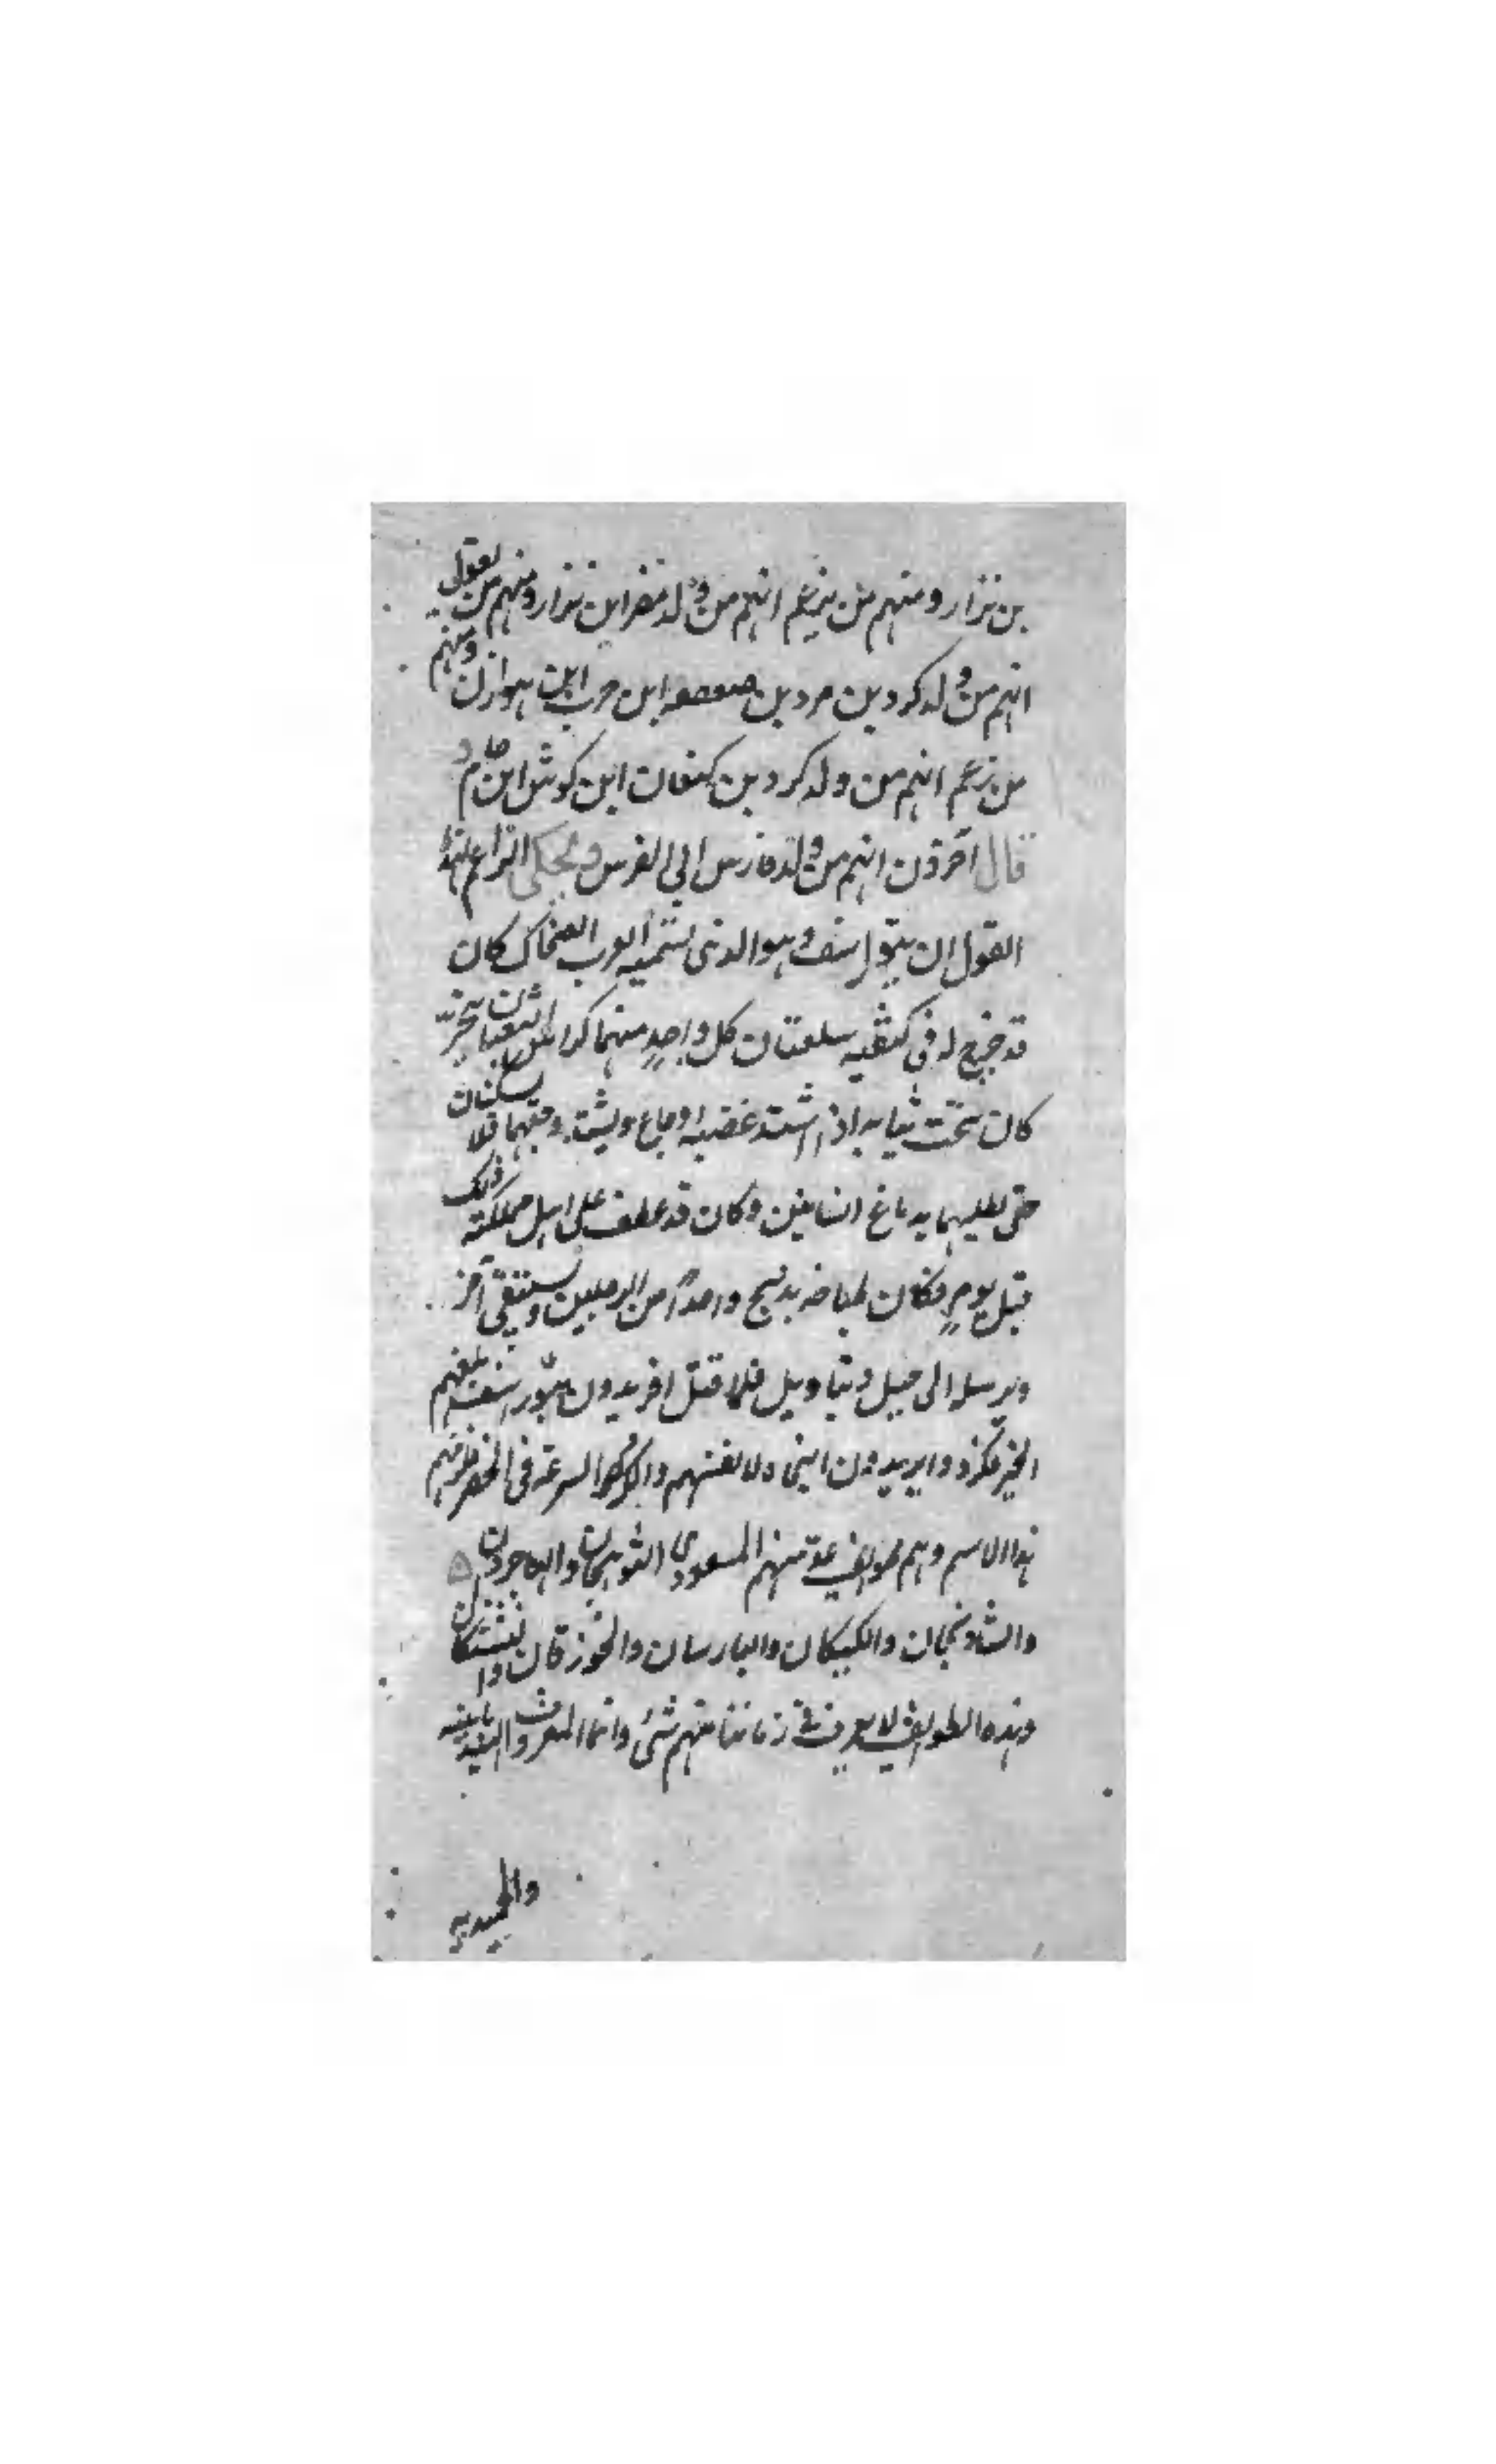 بن نزار ومنهم من يزعم انهم من ولد مضر ابن نزار ومنهم من يقول
انهم من ولد كرد بن مرد بن صعصعه ابن حرب ابن هوازن ومنهم
من زعم انهم من ولد كرد بن كنعان ابن كوش ابن حام و
قال آخرون انهم من ولد فارس ابي الفرس ويحكى الزاعم لهذا
القول ان بيوراسف وهو الذى تسميه العرب الضحاك كان
قد خرج له فى كتفيه سلعتان كل واحدٍ منهما كراس الثعبان يحركه
كان تحت ثيابه اذا اشتد غضبه او جاع ويشتد وجعهما فلا يسكنان
حتى يطليهما بدماغ انسانين وكان قد عطف على اهل مملكته ذلك
قبل يومٍ فكان طباخه يذبح واحداً من الرجلين ويستبقى آخر
ويرسله الى جبل دنباويل فلما قتل افريدون بيوراسف بلغهم
الخبر فكردوا يريدون النجاه لانفسهم والكرد السرعة فى الحضر فلزمهم
هذا الاسم وهم طوايف عدّ منهم المسعودى الشوهجان والماجردان
والشاذنجان والكيكان والبارسان والخوزقان والنشتكان
وهذه الطوايف لا يعرف فى زماننا منهم شئ وانما المعروف
والحميديه